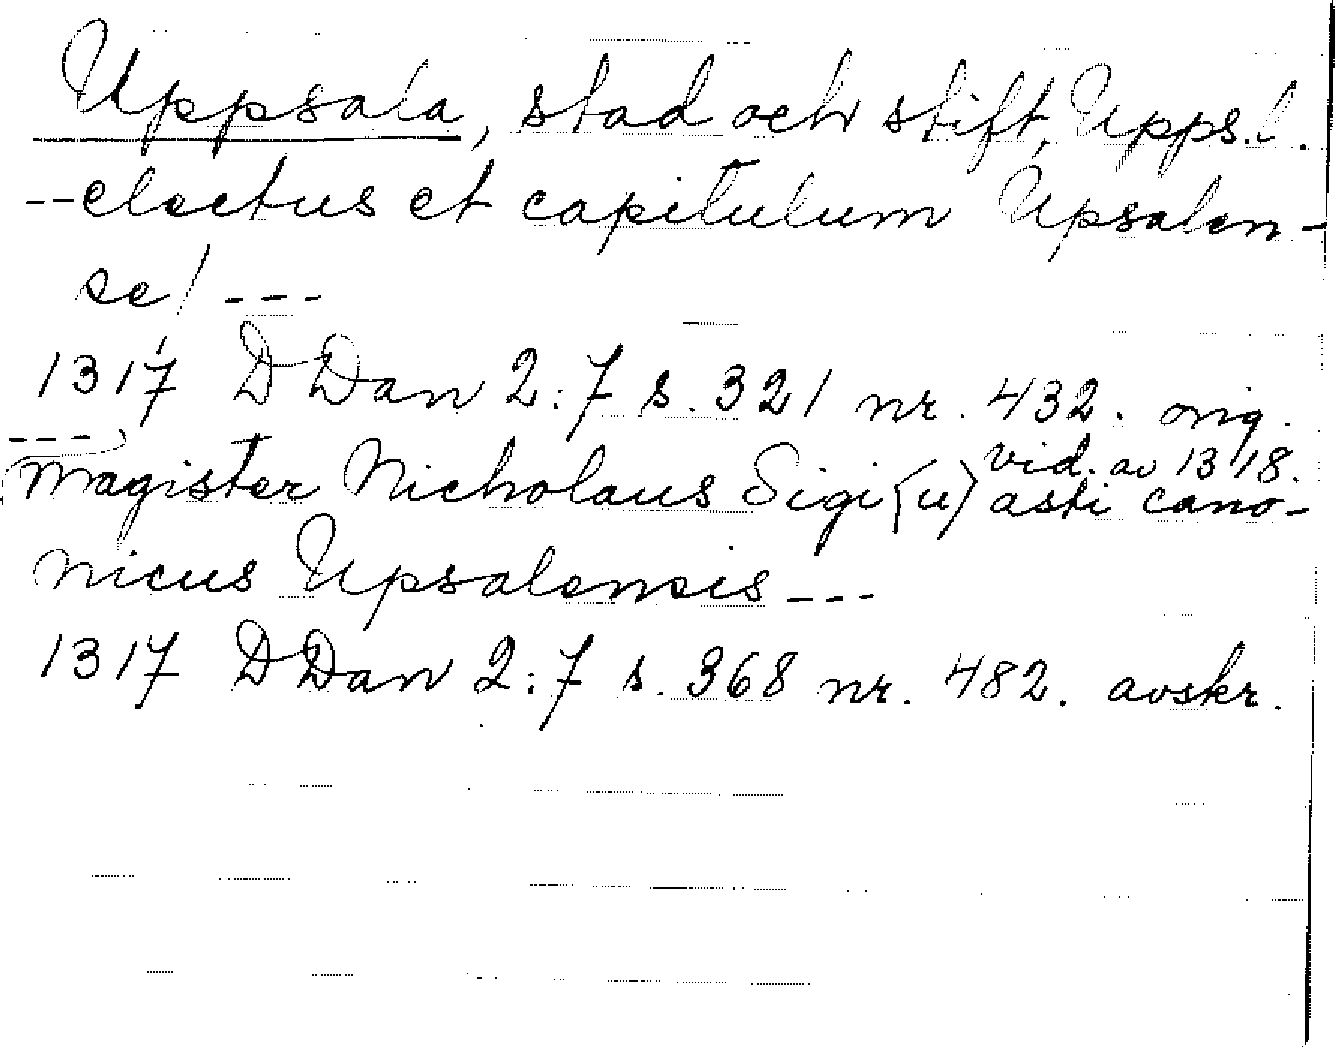 Uppsala, stad och stift, Upps.l.
--electus et capitulum Upsalen-
se/ ---
1317 DDan 2:7 s. 321 nr. 432. orig.
vid. av 1318.
--- magister Nicholaus Sigi(u)asti cano-
nicus Upsalensis ---
1317 DDan 2:7 s. 368 nr. 482. avskr.